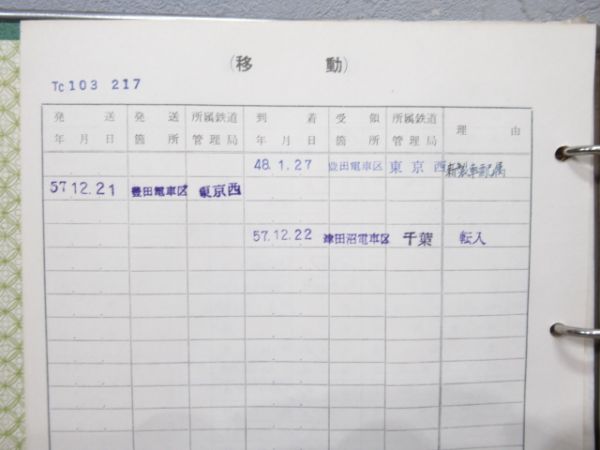 (移動)
Tc103 217
発送 発送 所属鉄道 到着 受領 所属鉄道 理由
年月日 箇所 管理局 年月日 箇所 管理局
48.1.27 豊田電車区 東京西 新製車配属
57.12.21 豊田電車区 東京西
57.12.22 津田沼電車区 千葉 転入